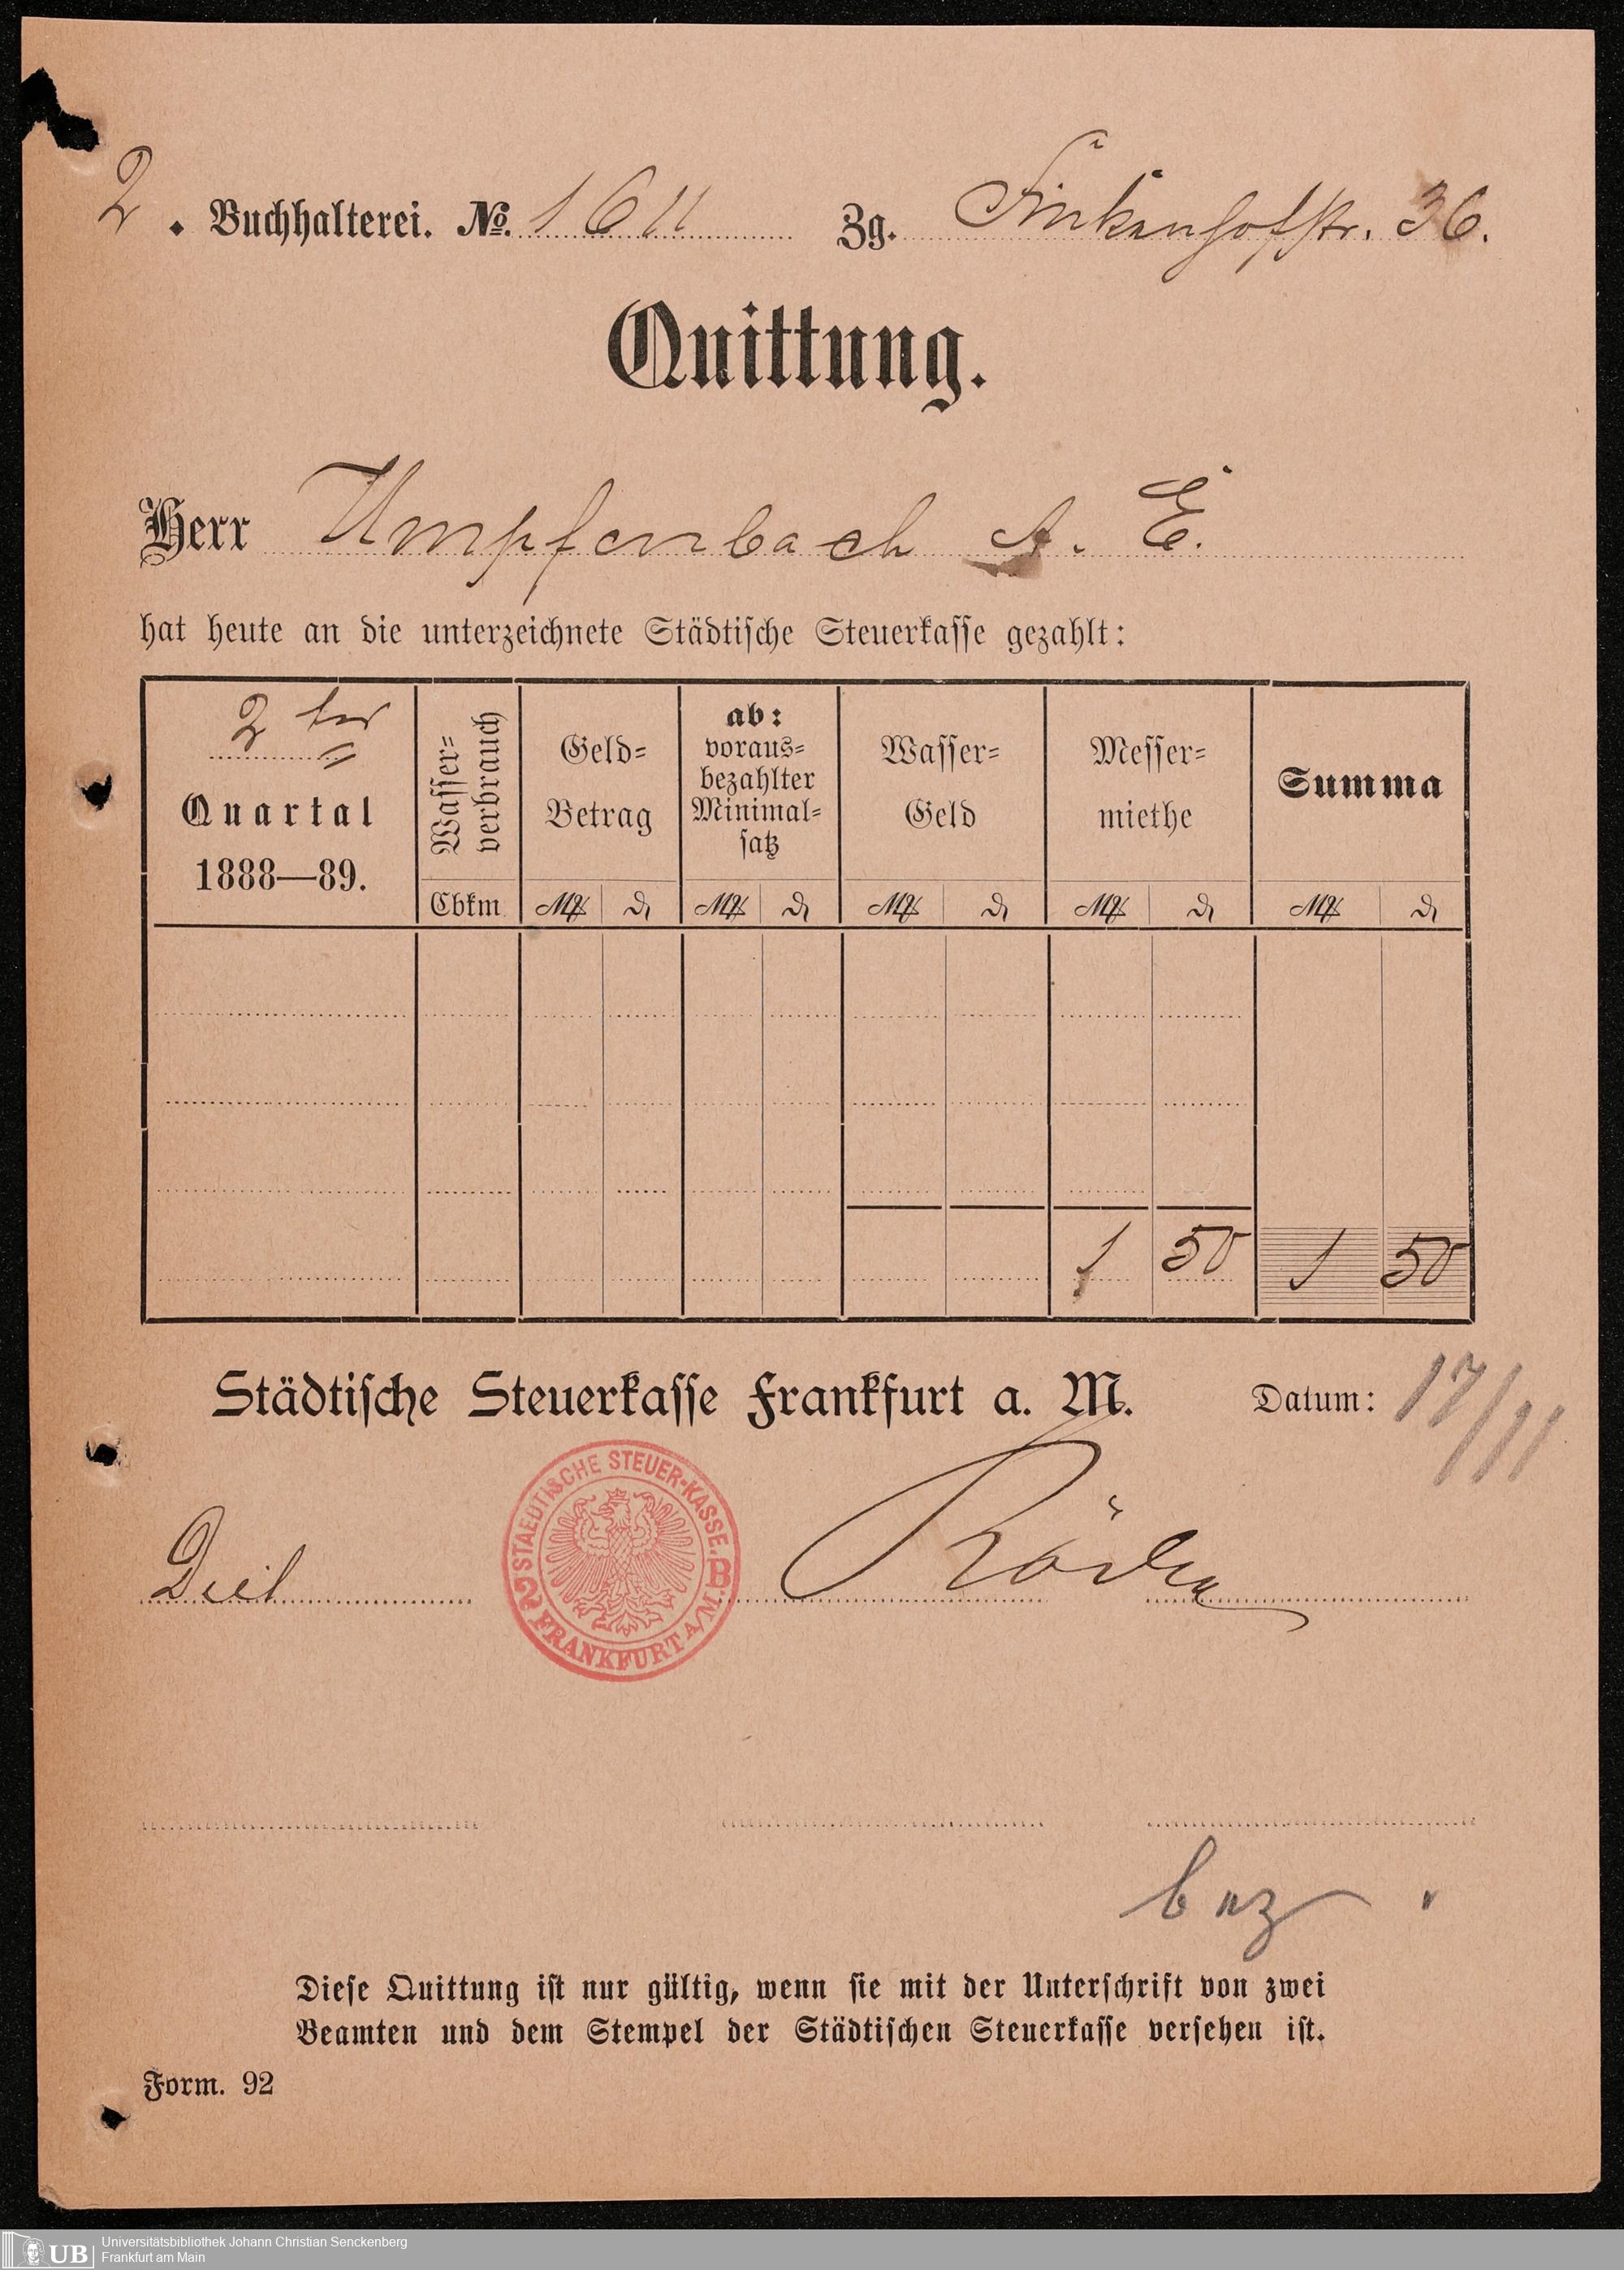 2. Buchhalterei. No. 1611 Zg. Finkenhofstr. 36.
Quittung.
Herr Umpfenbach A. E.
hat heute an die unterzeichnete Städtische Steuerkasse gezahlt:
2ter
Quartal
1888—89.
Wasser-
verbrauch
Cbkm
Geld-
Betrag
ab:
voraus-
bezahlter
Minimal-
satz
Wasser-
Geld
Messer-
miethe
Summa
1 50 1 50
Städtische Steuerkasse Frankfurt a. M. Datum: 17/11
STAEDTISCHE STEUER-KASSE.
2 B.
FRANKFURT A/M.
bez.
Diese Quittung ist nur gültig, wenn sie mit der Unterschrift von zwei
Beamten und dem Stempel der Städtischen Steuerkasse versehen ist.
Form. 92
UB Universitätsbibliothek Johann Christian Senckenberg
Frankfurt am Main